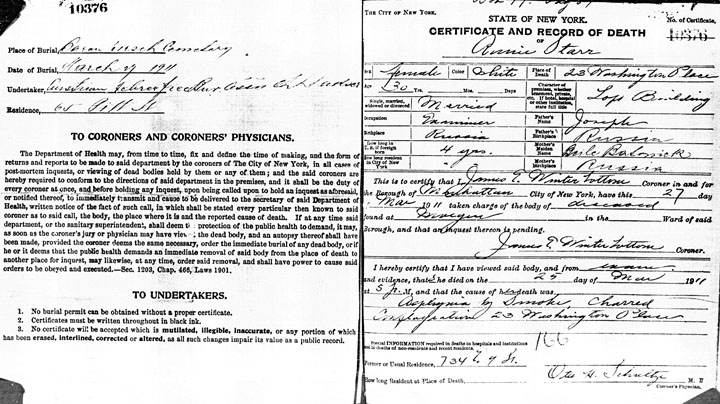 10376
Place of Burial,
Cemetery
Date of Burial, March 27 1911
Undertaker,
Residence, 65 Pitt St
TO CORONERS AND CORONERS' PHYSICIANS.
The Department of Health may, from time to time, fix and define the time of making, and the form of
returns and reports to be made to said department by the coroners of The City of New York, in all cases of
post-mortem inquests, or viewing of dead bodies held by them or any of them; and the said coroners are
hereby required to conform to the directions of said department in the premises, and it shall be the duty of
every coroner at once, and before holding any inquest, upon being called upon to hold an inquest as aforesaid,
or notified thereof, to immediately transmit and cause to be delivered to the secretary of said Department of
Health, written notice of the fact of such call, in which shall be stated every particular then known to said
coroner as to said call, the body, the place where it is and the reported cause of death. If at any time said
department, or the sanitary superintendent, shall deem the protection of the public health to demand, it may,
as soon as the coroner's jury or physician may have viewed the dead body, and an autopsy thereof shall have
been made, provided the coroner deems the same necessary, order the immediate burial of any dead body, or if
he or it deems that the public health demands an immediate removal of said body from the place of death to
another place for inquest, may likewise, at any time, order said removal, and shall have power to cause said
orders to be obeyed and executed.—Sec. 1203, Chap. 466, Laws 1901.
TO UNDERTAKERS.
1. No burial permit can be obtained without a proper certificate.
2. Certificates must be written throughout in black ink.
3. No certificate will be accepted which is mutilated, illegible, inaccurate, or any portion of which
has been erased, interlined, corrected or altered, as all such changes impair its value as a public record.
THE CITY OF NEW YORK.
STATE OF NEW YORK.
No. of Certificate,
10376
CERTIFICATE AND RECORD OF DEATH
OF Annie Starr
Sex female Color White Place of Death 23 Washington Place
Age 30 Yrs. Mos. Days. Character of premises, whether tenement, private, etc. If hotel, hospital or other institution, state full title Loft Building
Single, married, widowed or divorced Married
Occupation Examiner Father's Name Joseph
Birthplace Russia Father's Birthplace Russia
How long in U.S. if foreign born 4 yrs. Mother's Maiden Name
How long resident in City of New York Mother's Birthplace Russia
This is to certify that I James E Winterbottom Coroner in and for
the Borough of Manhattan City of New York, have this 27 day
Mar 1911 taken charge of the body of deceased
found at Morgue in the Ward of said
Borough, and that an inquest thereon is pending.
James E Winterbottom Coroner.
I hereby certify that I have viewed said body, and from exam
and evidence, that he died on the 25 day of Mar 1911
at 5 P. M, and that the cause of his death was
Asphyxia by Smoke, Charred
Conflagration 23 Washington Place
166
Special INFORMATION required in deaths in hospitals and institutions
and in deaths of non-residents and recent residents.
Former or Usual Residence, 734 E 9 St.
How long Resident at Place of Death, Otto H. Schultze M. D.
Coroner's Physician.